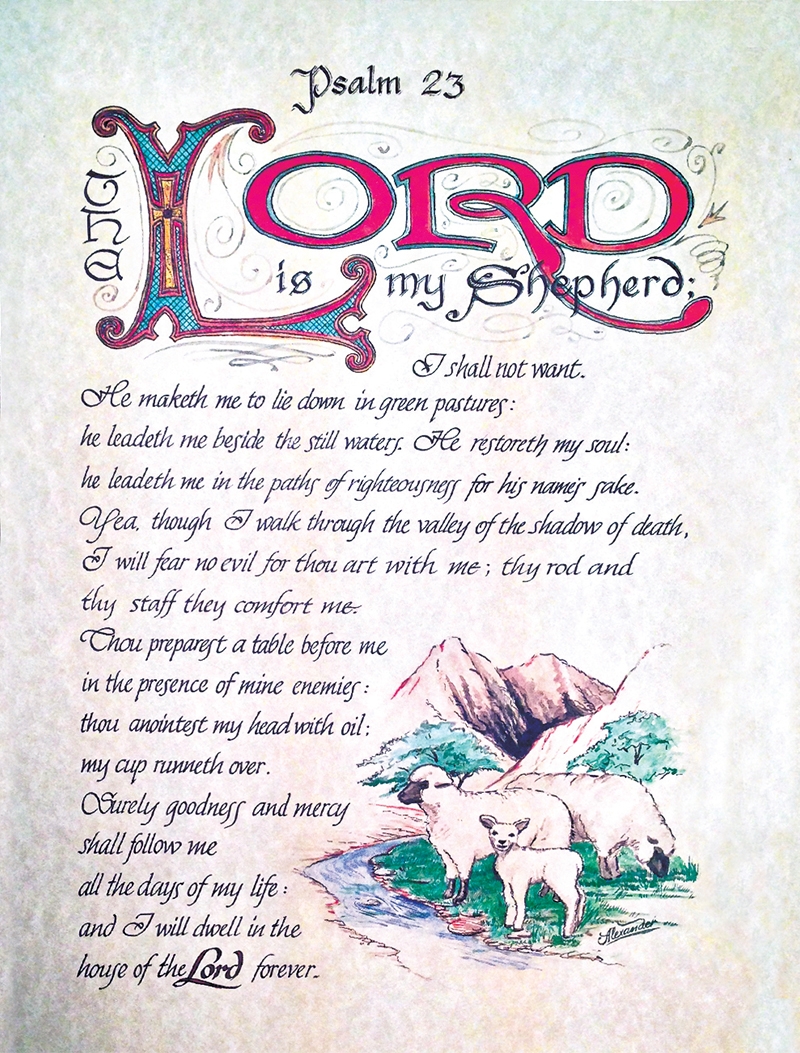 Psalm 23
THE LORD
is my Shepherd;
I shall not want.
He maketh me to lie down in green pastures:
he leadeth me beside the still waters. He restoreth my soul:
he leadeth me in the paths of righteousness for his name's sake.
Yea, though I walk through the valley of the shadow of death,
I will fear no evil for thou art with me; thy rod and
thy staff they comfort me.
Thou preparest a table before me
in the presence of mine enemies:
thou anointest my head with oil;
my cup runneth over.
Surely goodness and mercy
shall follow me
all the days of my life:
and I will dwell in the
house of the Lord forever.
Alexander